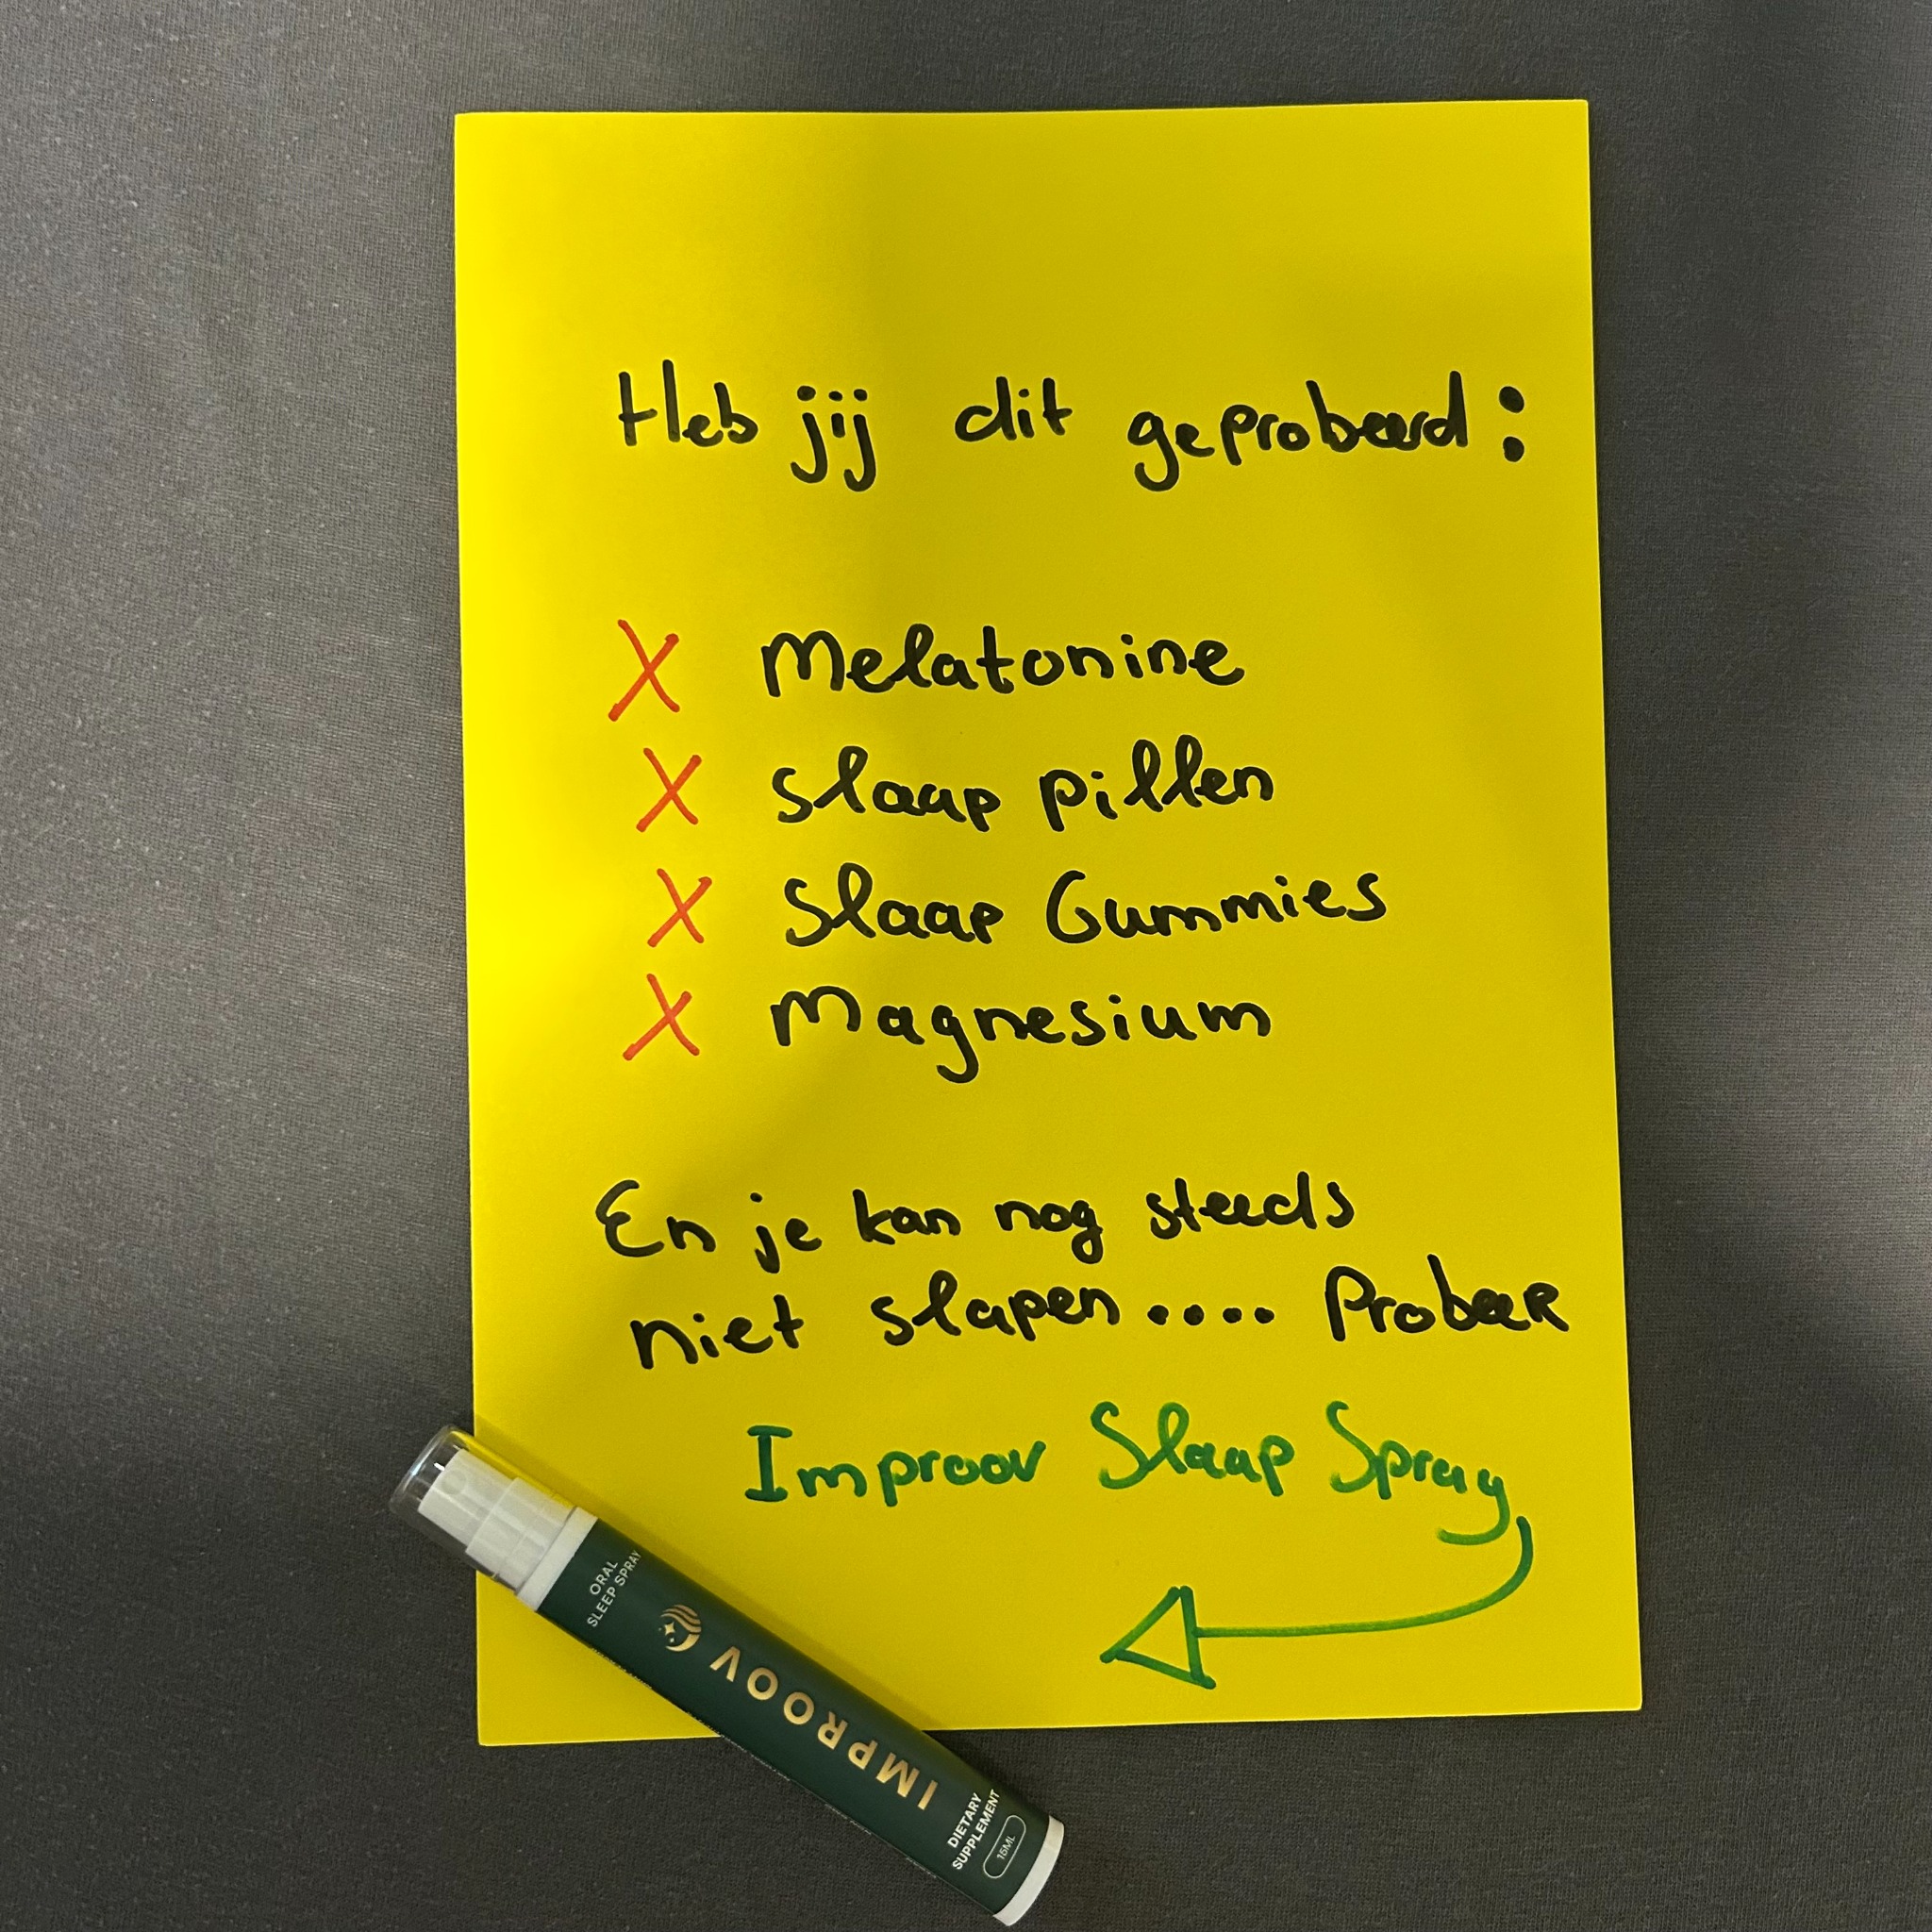 Heb jij dit geprobeerd:
X Melatonine
X slaap pillen
X Slaap Gummies
X Magnesium
En je kan nog steeds
niet slapen.... Probeer
Improov Slaap Spray
ORAL
SLEEP SPRAY
IMPROOV
DIETARY
SUPPLEMENT
15ML